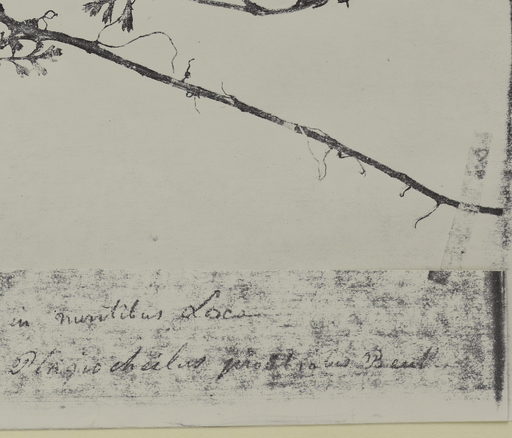 in montibus Loxa
Plagiocheilus prostratus Benth.